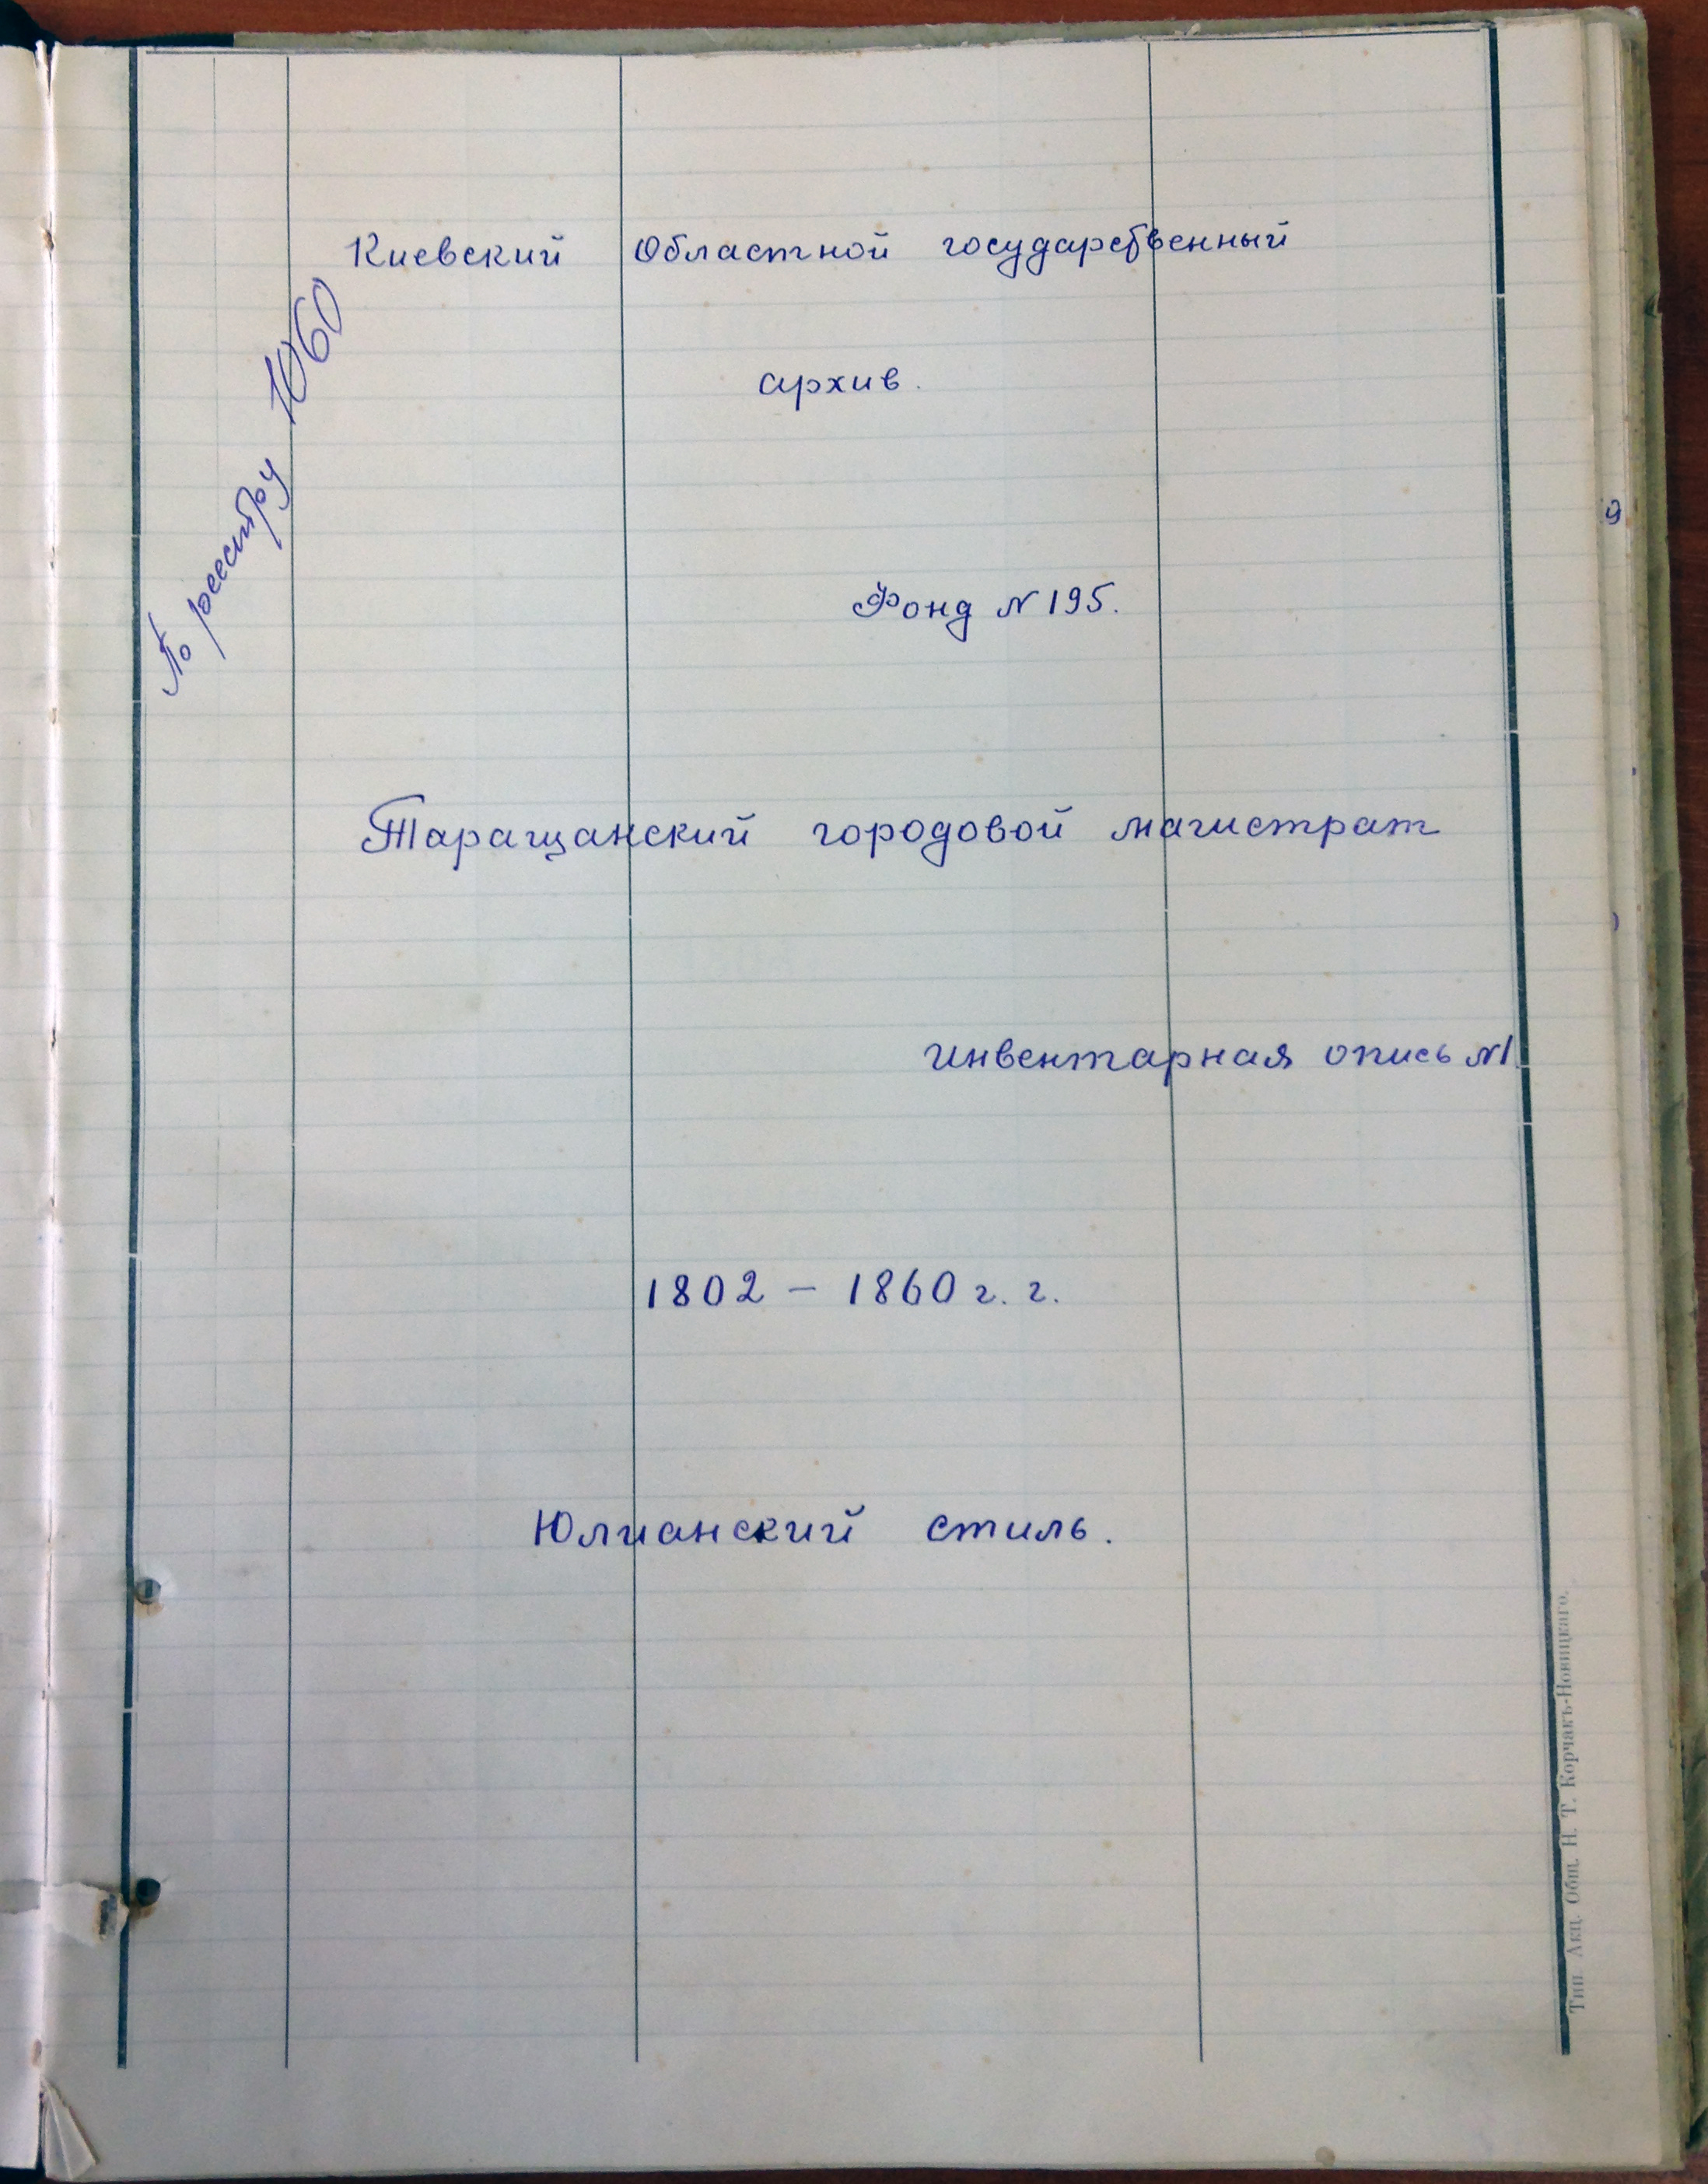 Киевский Областной государственный
архив.
По реестру 1060
Фонд N 195.
Таращанский городовой магистрат
Инвентарная опись N1.
1802 – 1860 г. г.
Юлианский стиль.
Тип. Акц. Общ. Н. Т. Корчакъ-Новицкаго.